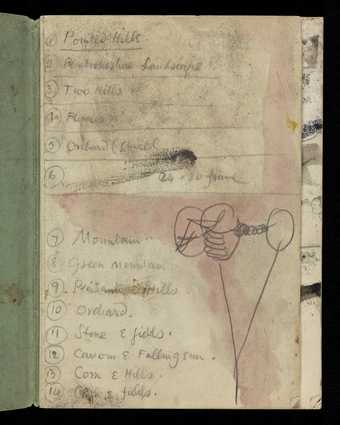 ① Pointed Hills
② Pembrokeshire Landscape
③ Two Hills
④
⑤ Orchard
⑥
⑦ Mountain
⑧ Green mountain
⑨ Hills
⑩ Orchard.
⑪ Stone & fields.
⑫ Cairn & Falling sun.
⑬ Corn & Hills.
⑭ Corn & fields.